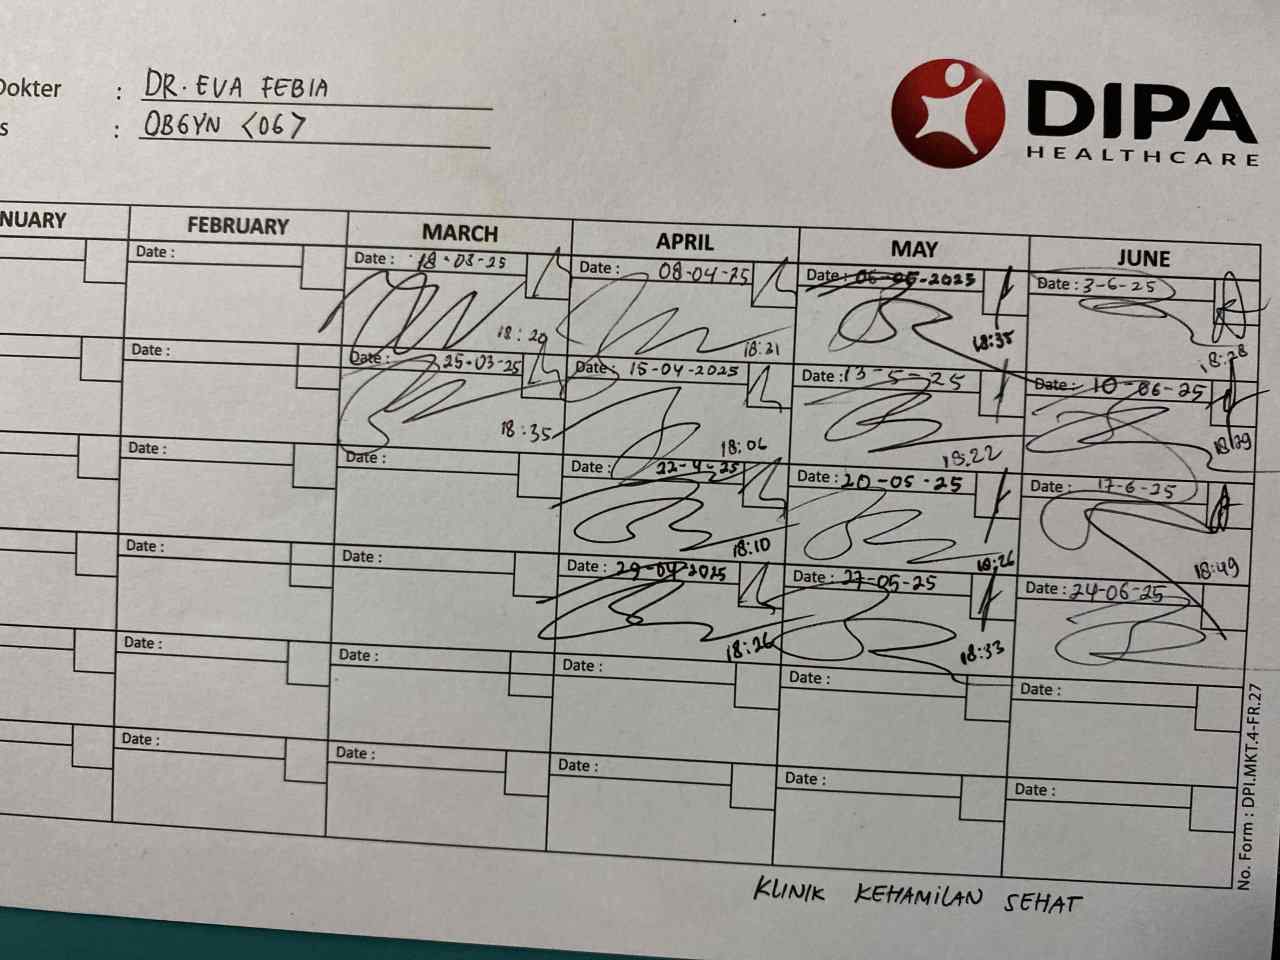 Dokter : DR. EVA FEBIA
s : OBGYN <06>
DIPA
HEALTHCARE
NUARY FEBRUARY MARCH APRIL MAY JUNE
Date : Date : 18-03-25 Date : 08-04-25 Date : 06-05-2025 Date : 3-6-25
18:20 18:21 18:35 18:28
Date : Date : 25-03-25 Date : 15-04-2025 Date : 13-5-25 Date : 10-06-25
18:35 18:06 18:22 18:29
Date : Date : Date : 22-4-25 Date : 20-05-25 Date : 17-6-25
18:10 18:26 18:49
Date : Date : Date : 29-04-2025 Date : 27-05-25 Date : 24-06-25
18:26 18:33
Date : Date : Date : Date : Date :
Date : Date : Date : Date : Date :
No. Form : DPI.MKT.4-FR.27
KLINIK KEHAMILAN SEHAT